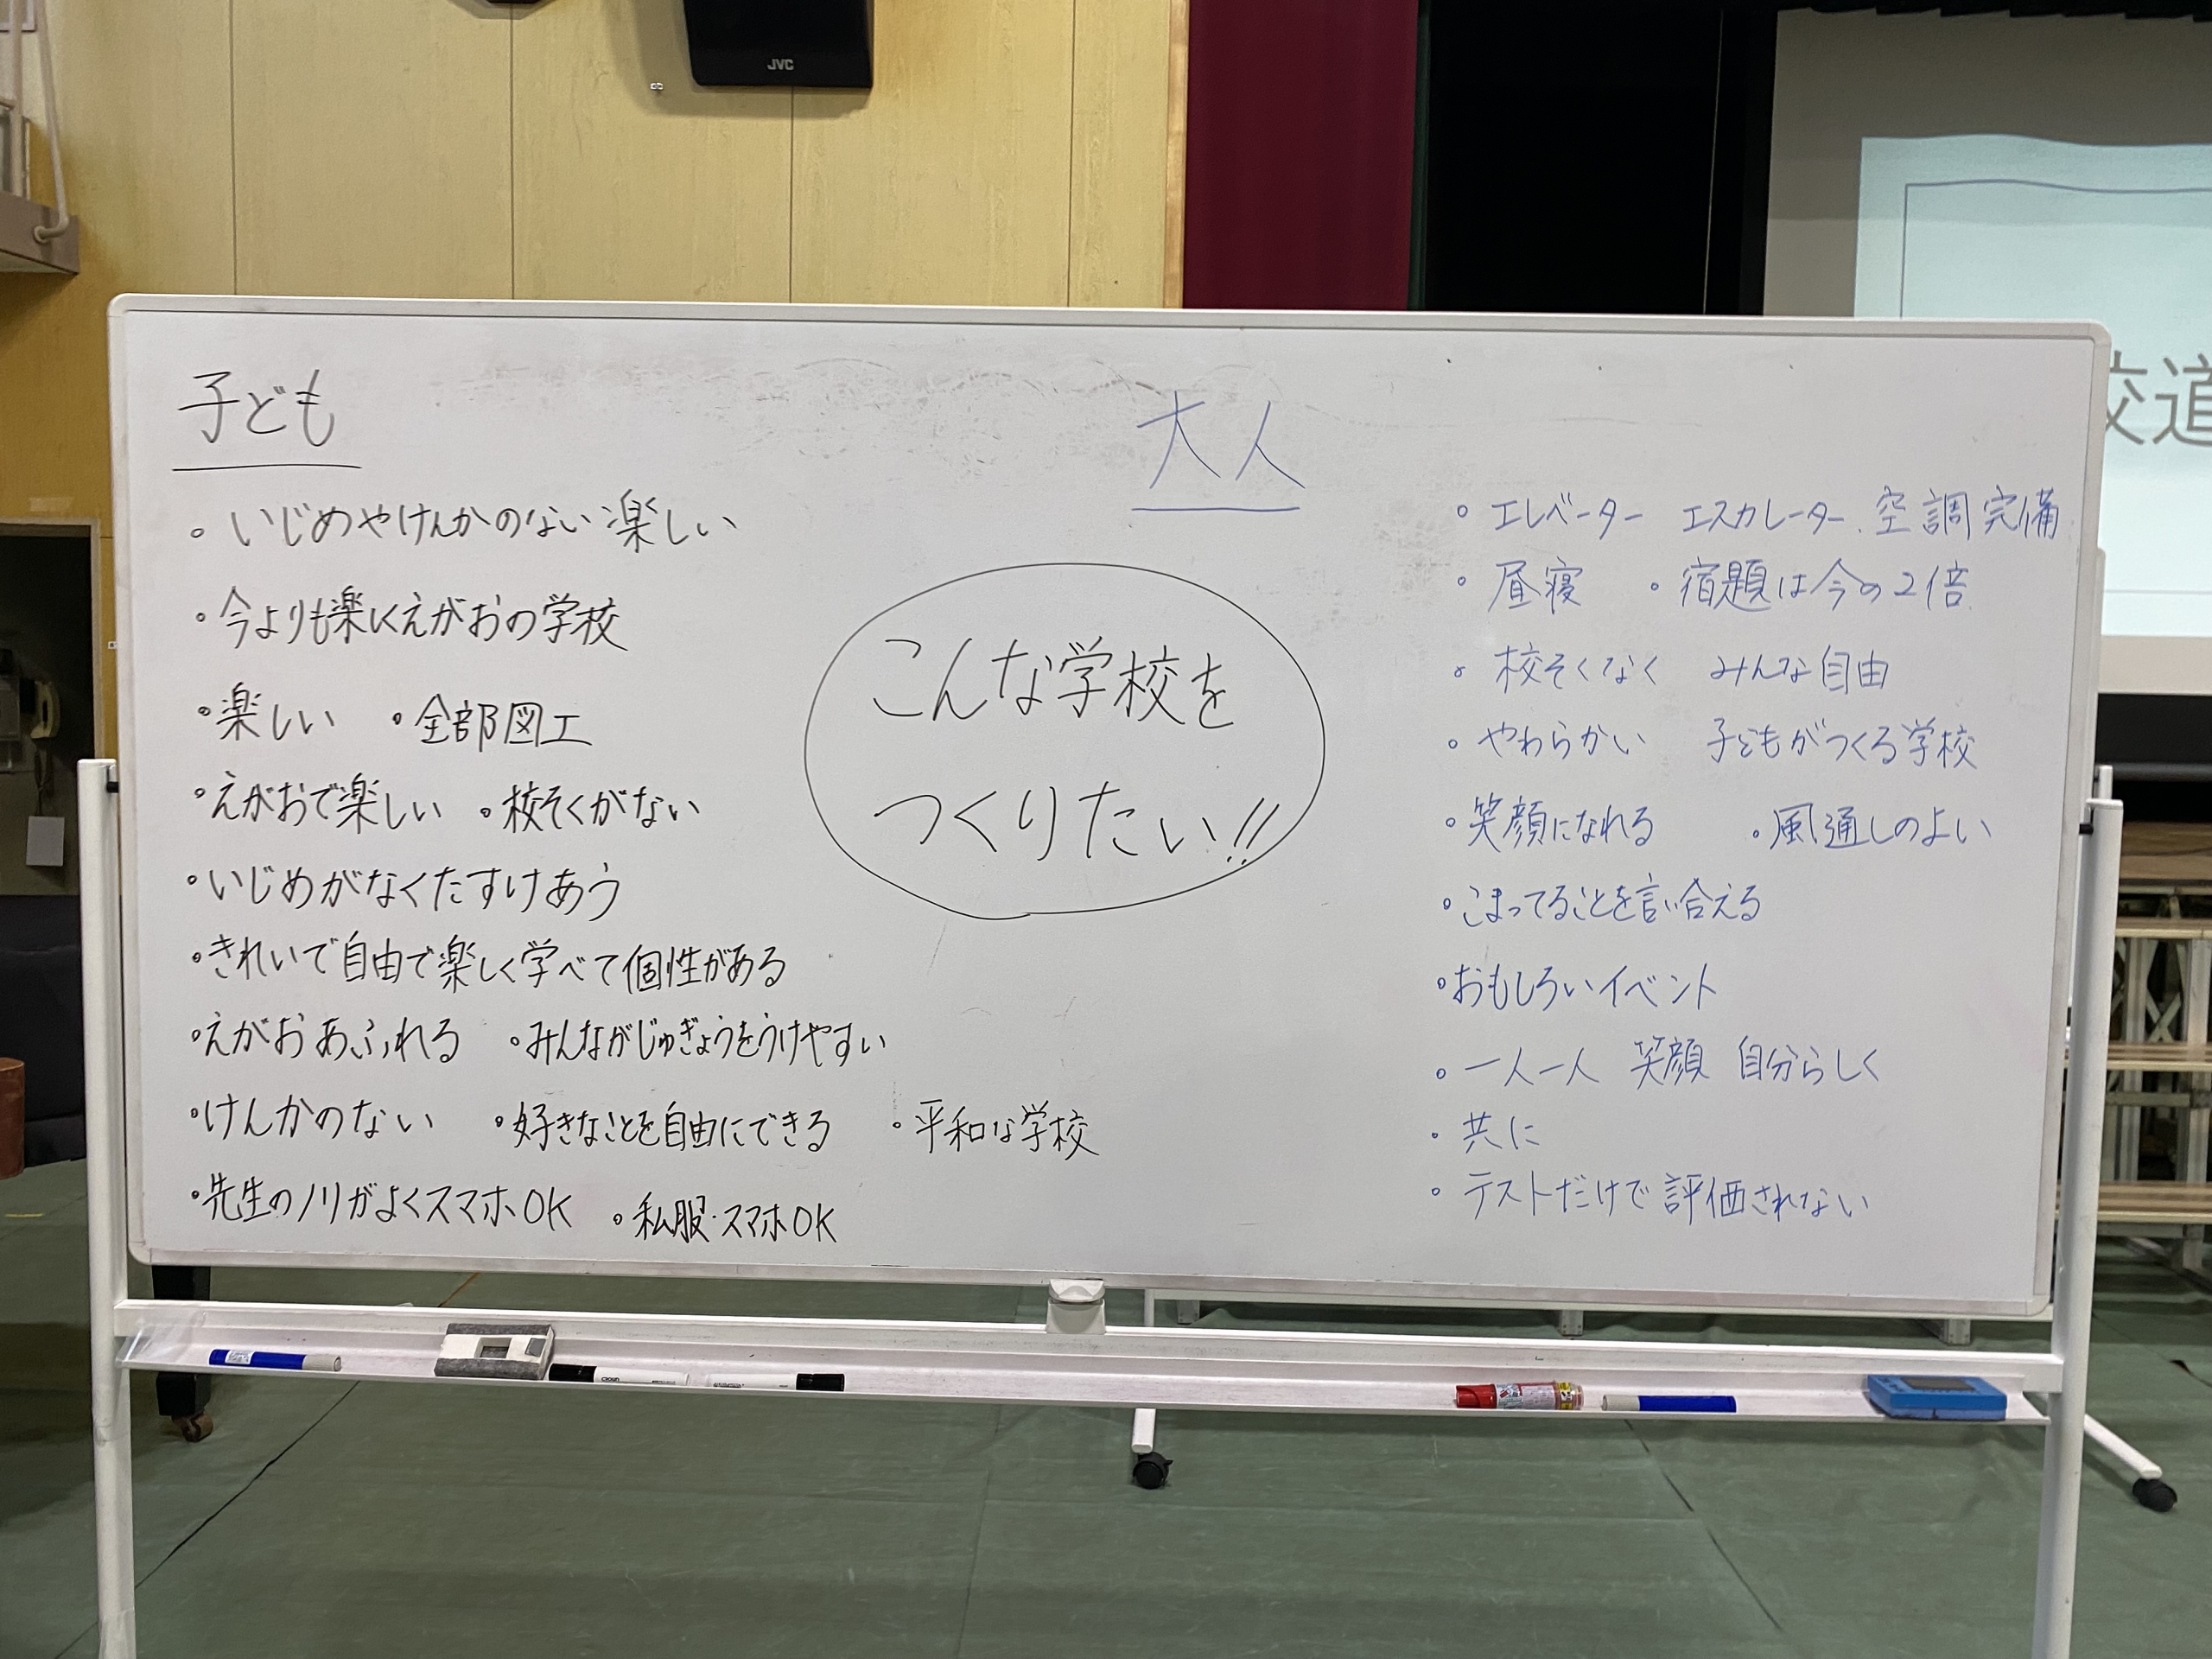 JVC
校道
子ども
・いじめやけんかのない楽しい
・今よりも楽しくえがおの学校
・楽しい ・全部図工
・えがおで楽しい ・校そくがない
・いじめがなくたすけあう
・きれいで自由で楽しく学べて個性がある
・えがおあふれる ・みんながじゅぎょうをうけやすい
・けんかのない ・好きなことを自由にできる ・平和な学校
・先生のノリがよくスマホOK ・私服・スマホOK
こんな学校を
つくりたい!!
大人
・エレベーター エスカレーター、空調完備
・昼寝 ・宿題は今の2倍
・校そくなく みんな自由
・やわらかい 子どもがつくる学校
・笑顔になれる ・風通しのよい
・こまってることを言い合える
・おもしろいイベント
・一人一人 笑顔 自分らしく
・共に
・テストだけで評価されない